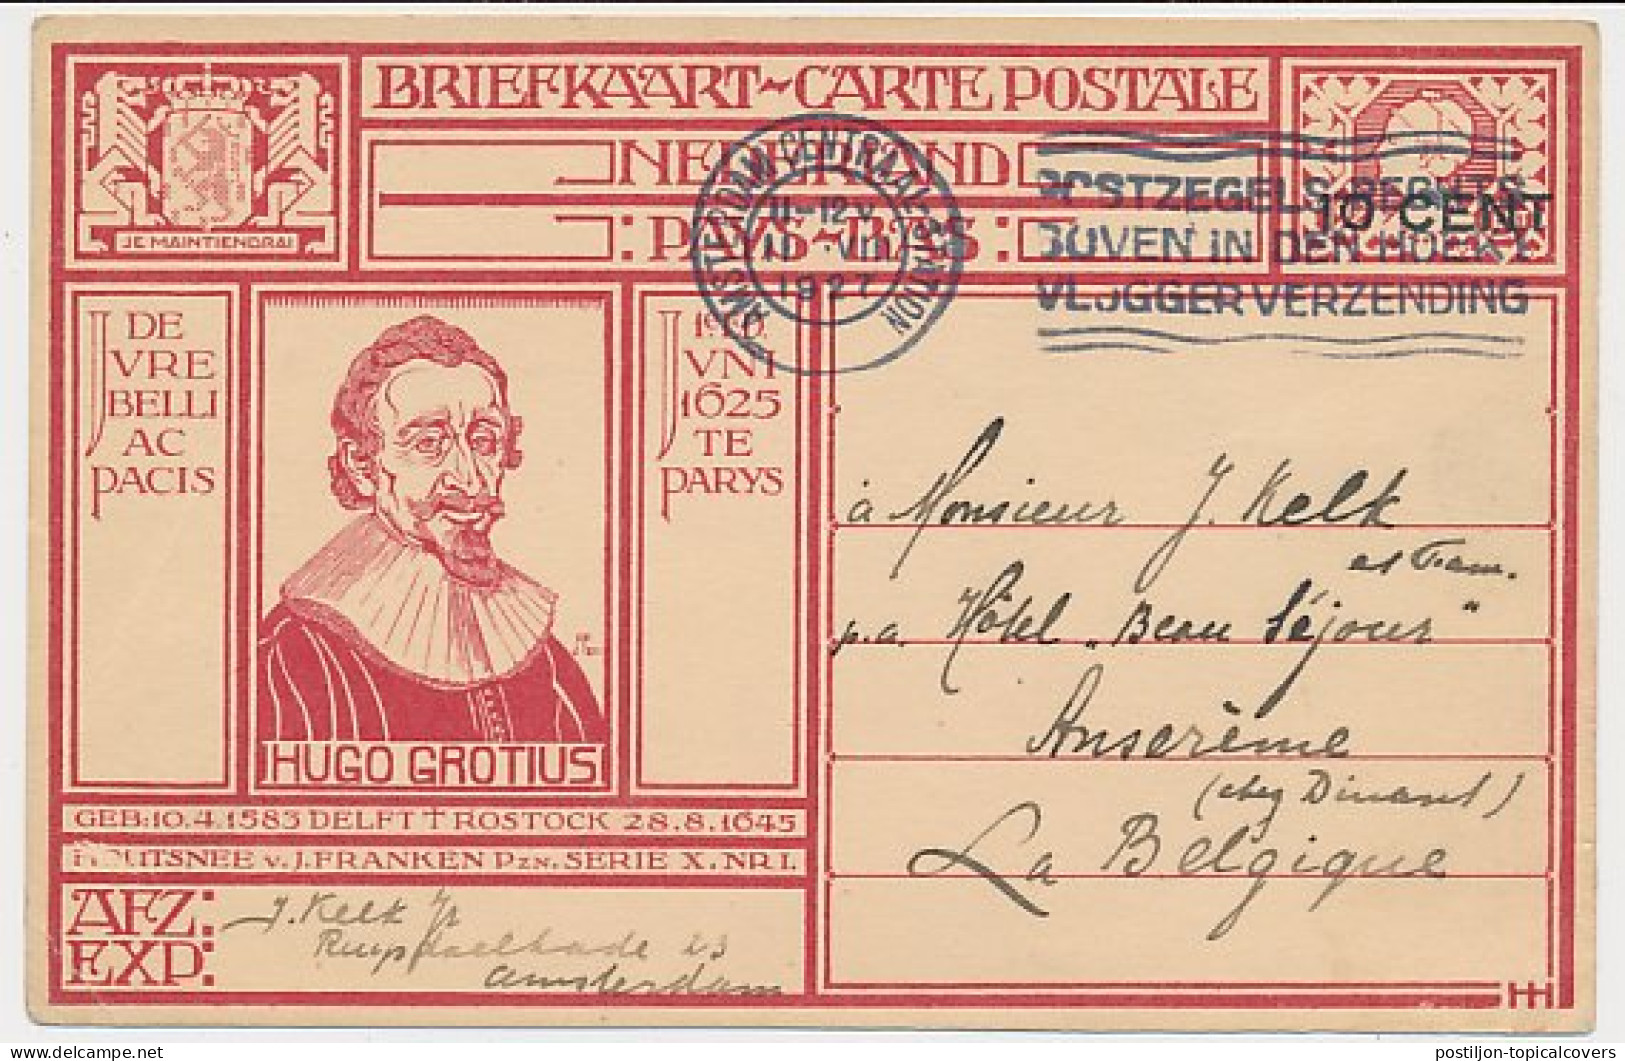 BRIEFKAART~CARTE POSTALE
NEDERLAND
PAYS-BAS:
JE MAINTIENDRAI
AMSTERDAM CENTRAAL-STATION
11-12V
10 VIII
1927
POSTZEGELS RECHTS
BOVEN IN DEN HOEK
VLUGGER VERZENDING
10 CENT
DE
JVRE
BELLI
AC
PACIS
JVNI
1625
TE
PARYS
HUGO GROTIUS
GEB:10.4.1583 DELFT † ROSTOCK 28.8.1645
HOUTSNEE v. J. FRANKEN PZN. SERIE X. NR I.
AFZ:
EXP:
J. Kelk Jr
Ruysdaelkade 23
Amsterdam
à Monsieur J. Kelk
et Fam.
p.a. Hôtel „Beau Séjour"
Anserème
(chez Dinant)
La Belgique
HH
postiljon-topicalcovers